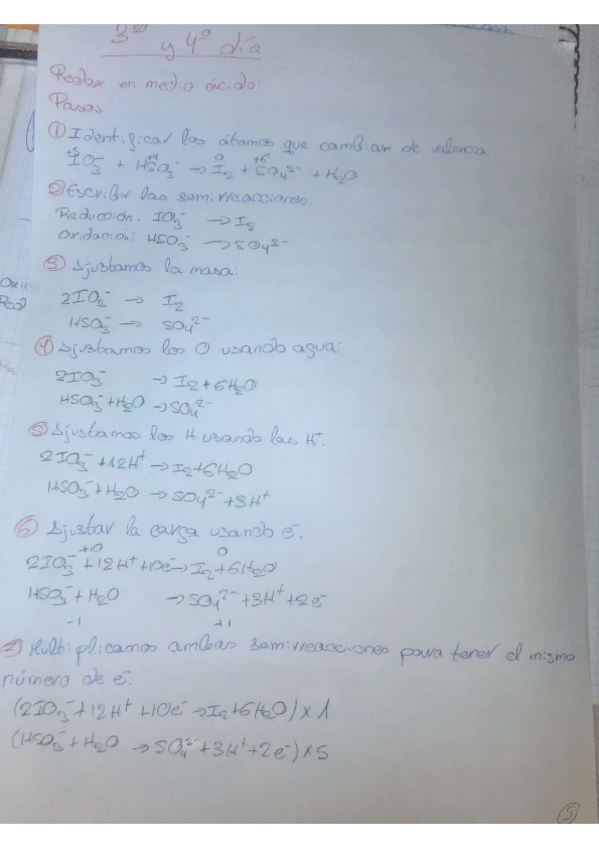 3º
y 4º día
Redox en medio ácido:
Pasos
① Identificar los átomos que cambian de valencia
+5 +4 0 +6
IO₃⁻ + HSO₃⁻ → I₂ + SO₄²⁻ + H₂O
② Escribir las semirreacciones.
Reducción: IO₃⁻ → I₂
Oxidación: HSO₃⁻ → SO₄²⁻
③ Ajustamos la masa:
2IO₃⁻ → I₂
HSO₃⁻ → SO₄²⁻
④ Ajustamos los O usando agua:
2IO₃⁻ → I₂ + 6H₂O
HSO₃⁻ + H₂O → SO₄²⁻
⑤ Ajustamos los H usando los H⁺.
2IO₃⁻ + 12H⁺ → I₂ + 6H₂O
HSO₃⁻ + H₂O → SO₄²⁻ + 3H⁺
⑥ Ajustar la carga usando e⁻.
+10 0
2IO₃⁻ + 12H⁺ + 10e⁻ → I₂ + 6H₂O
HSO₃⁻ + H₂O → SO₄²⁻ + 3H⁺ + 2e⁻
-1 +1
⑦ Multiplicamos ambas semirreacciones para tener el mismo
número de e⁻.
(2IO₃⁻ + 12H⁺ + 10e⁻ → I₂ + 6H₂O) x 1
(HSO₃⁻ + H₂O → SO₄²⁻ + 3H⁺ + 2e⁻) x 5
⑤